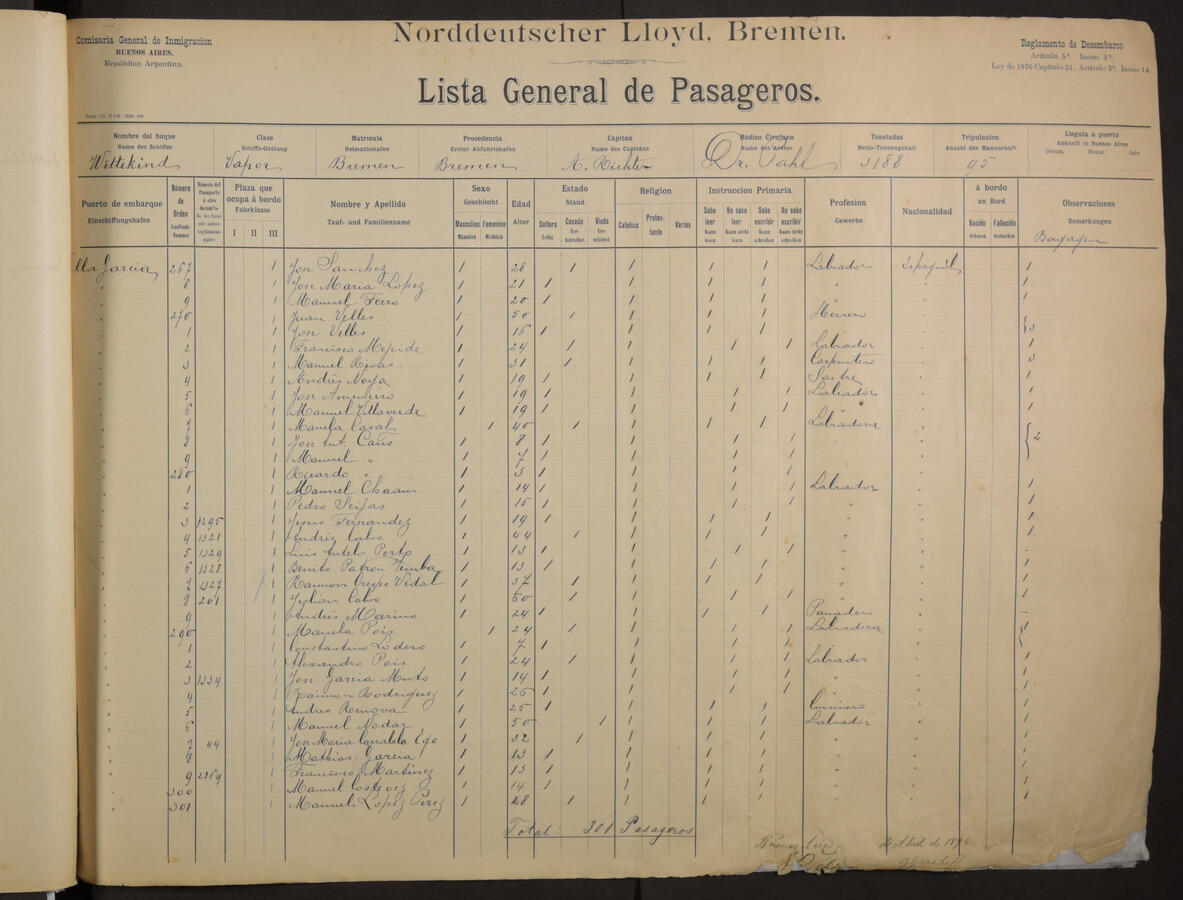 Comisaria General de Inmigracion
BUENOS AIRES.
República Argentina.
Norddeutscher Lloyd, Bremen.
Reglamento de Desembarco
Artículo 5º. Inciso 3º.
Ley de 1876 Capítulo 51. Artículo 3º. Inciso 14.
Lista General de Pasageros.
Nombre del buque Clase Matricula Procedencia Capitan Médico Cirujano Toneladas Tripulacion Llegata a puerto
Name des Schiffes Schiffs-Gattung Heimathshafen Erster Abfahrtshafen Name des Capitäns Name des Arztes Netto-Tonnengehalt Anzahl der Mannschaft Ankunft in Buenos Aires
Datum, Monat. Jahr
Wittekind Vapor Bremen Bremen A. Richter Dr. Vahl 3188 95
Puerto de embarque Número de Orden Plaza que ocupa á bordo Nombre y Apellido Sexo Edad Estado Religion Instruccion Primaria Profesion Nacionalidad á bordo Observaciones
Einschiffungshafen Laufende Nummer Fahrklasse Tauf- und Familienname Geschlecht Alter Stand Gewerbe an Bord Bemerkungen
I II III Masculino Femenino Soltero Casado Viudo Catolico Protestante Varios Sabe leer No sabe leer Sabe escribir No sabe escribir Nacido Fallecido
Männlich Weiblich Ledig Kann lesen Kann nicht lesen Kann schreiben Kann nicht schreiben Geboren Gestorben
Bagage
Garcia 267 1 Jose Sanchez 1 28 1 1 1 1 Labrador Español 1
" 8 1 Jose Maria Lopez 1 21 1 1 1 1 " " 1
" 9 1 Manuel Ferro 1 20 1 1 1 1 " " 1
" 270 1 Juan Velles 1 50 1 1 1 1 Herrero "
" 1 1 Jose Velles 1 16 1 1 1 1 " " 3
" 2 1 Francisco 1 24 1 1 1 1 Labrador " 1
" 3 1 Manuel Rivas 1 31 1 1 1 1 Carpintero " 3
" 4 1 Andrés Noya 1 19 1 1 1 1 Sastre " 1
" 5 1 Jose 1 19 1 1 1 1 Labrador " 1
" 6 1 Manuel Villaverde 1 19 1 1 1 1 " " 1
" 7 1 Manuela Casal 1 40 1 1 1 1 Labradora "
" 8 1 Jose Ant. 1 8 1 1 1 1 " 2
" 9 1 Manuel " 1 7 1 1 1 1 "
" 280 1 Ricardo " 1 3 1 1 1 1 "
" 1 1 Manuel 1 14 1 1 1 1 Labrador " 1
" 2 1 Pedro Seijas 1 15 1 1 1 1 " " 1
" 3 1895 1 Jesus Fernandez 1 19 1 1 1 1 " " 1
" 4 1321 1 Andrés Calvo 1 44 1 1 1 1 " " 1
" 5 1329 1 Luis Antelo Porto 1 13 1 1 1 1 " " -
" 6 1328 1 Benito Patron 1 13 1 1 1 1 " " 1
" 7 1327 1 Ramon Crespo Vidal 1 37 1 1 1 1 " " 1
" 8 201 1 Julian Calvo 1 60 1 1 1 1 " " 1
" 9 1 Andrés Marino 1 24 1 1 1 1 Panadero " -
" 290 1 Manuela Pois 1 24 1 1 1 1 Labradora " 1
" 1 1 Constantino Lodero 1 7 1 1 1 1 "
" 2 1 Alexandro Pois 1 24 1 1 1 1 Labrador " 1
" 3 1334 1 Jose Garcia Muto 1 14 1 1 1 1 " " 1
" 4 1 Ramon Rodriguez 1 26 1 1 1 1 " " 1
" 5 1 Andres Renova 1 25 1 1 1 1 " 1
" 6 1 Manuel Nodar 1 50 1 1 1 1 Labrador " 1
" 7 44 1 Jose Maria 1 32 1 1 1 1 " " 1
" 8 1 Mathias Garcia 1 13 1 1 1 1 " " 1
" 9 2869 1 Francisco Martinez 1 13 1 1 1 1 " " 1
" 300 1 Manuel 1 14 1 1 1 1 " " 1
" 301 1 Manuel Lopez Perez 1 28 1 1 1 1 " " 1
Total: 301 Pasageros
Buenos Aires de Abril de 1896